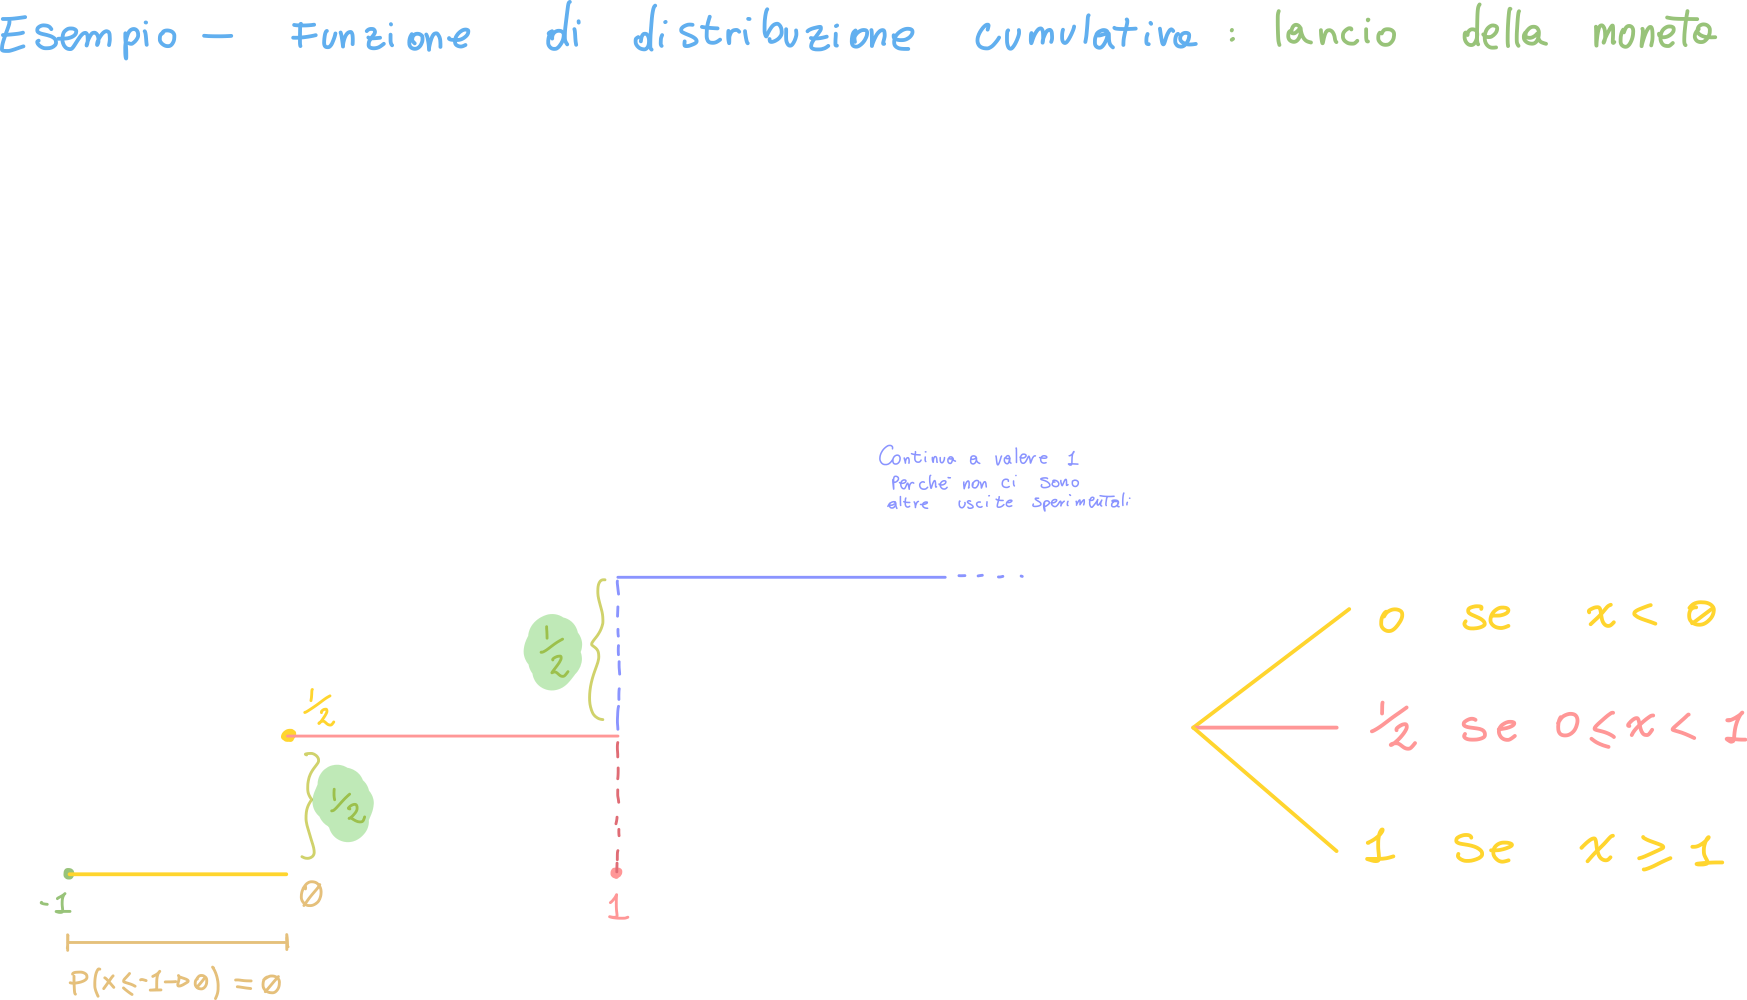 Esempio - Funzione di distribuzione cumulativa : lancio della moneta
Continua a valere 1
Perche non ci sono
altre uscite sperimentali
1/2
1/2
1/2
-1
0
1
P(x⩽-1→0) = 0
0 se x < 0
1/2 se 0⩽x< 1
1 se x ⩾ 1